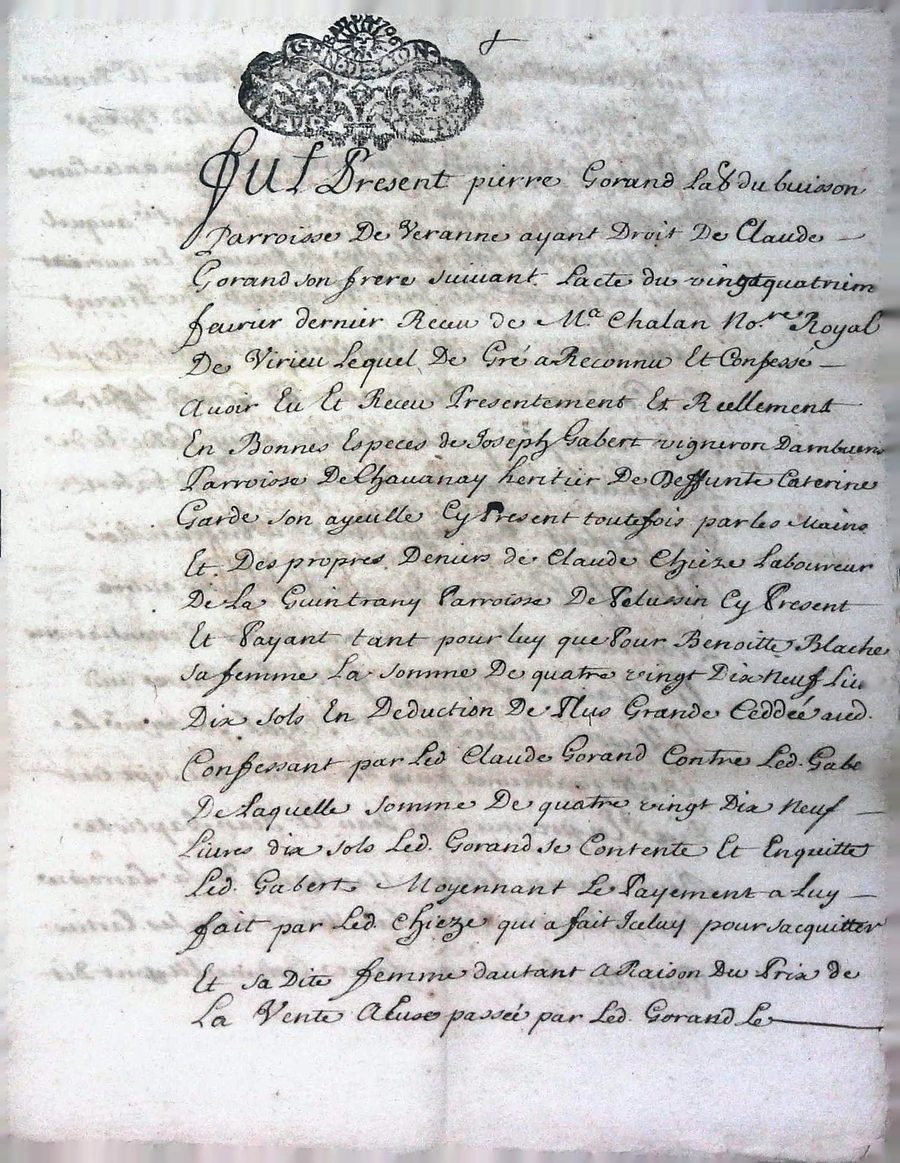 GEN. DE LYON
fut Present pierre Gorand La8 du buisson
Parroisse De Veranne ayant Droit De Claude
Gorand son frere suivant Lacte du vingtquatriem
fevrier dernier Receu de Me Chalan No.re Royal
De Virieu Lequel De Gré a Reconnu Et Confessé
Avoir Eu Et Receu Presentement Et Reellement
En Bonnes Especes de Joseph Gabert vigneron Dambuens
Parroisse De Chavanay heritier De Deffunte Caterine
Garde son ayeulle Cy Present toutefois par les Mains
Et Des propres Deniers de Claude Chieze Laboureur
De La Guintrany Parroisse De Pelussin Cy Present
Et Payant tant pour luy que Pour Benoitte Blache
sa femme La somme De quatre vingt Dix Neuf Liv
Dix sols En Deduction De Plus Grande Ceddée aud.
Confessant par Led. Claude Gorand Contre Led. Gabe
De Laquelle somme De quatre vingt Dix Neuf
Livres dix sols Led. Gorand se Contente Et Enquitte
Led. Gabert Moyennant Le Payement a Luy
fait par Led. Chieze qui a fait Iceluy pour sacquitter
Et sa Dite femme dautant a Raison Du Prix de
La Vente A Eux passée par Led. Gorand Le